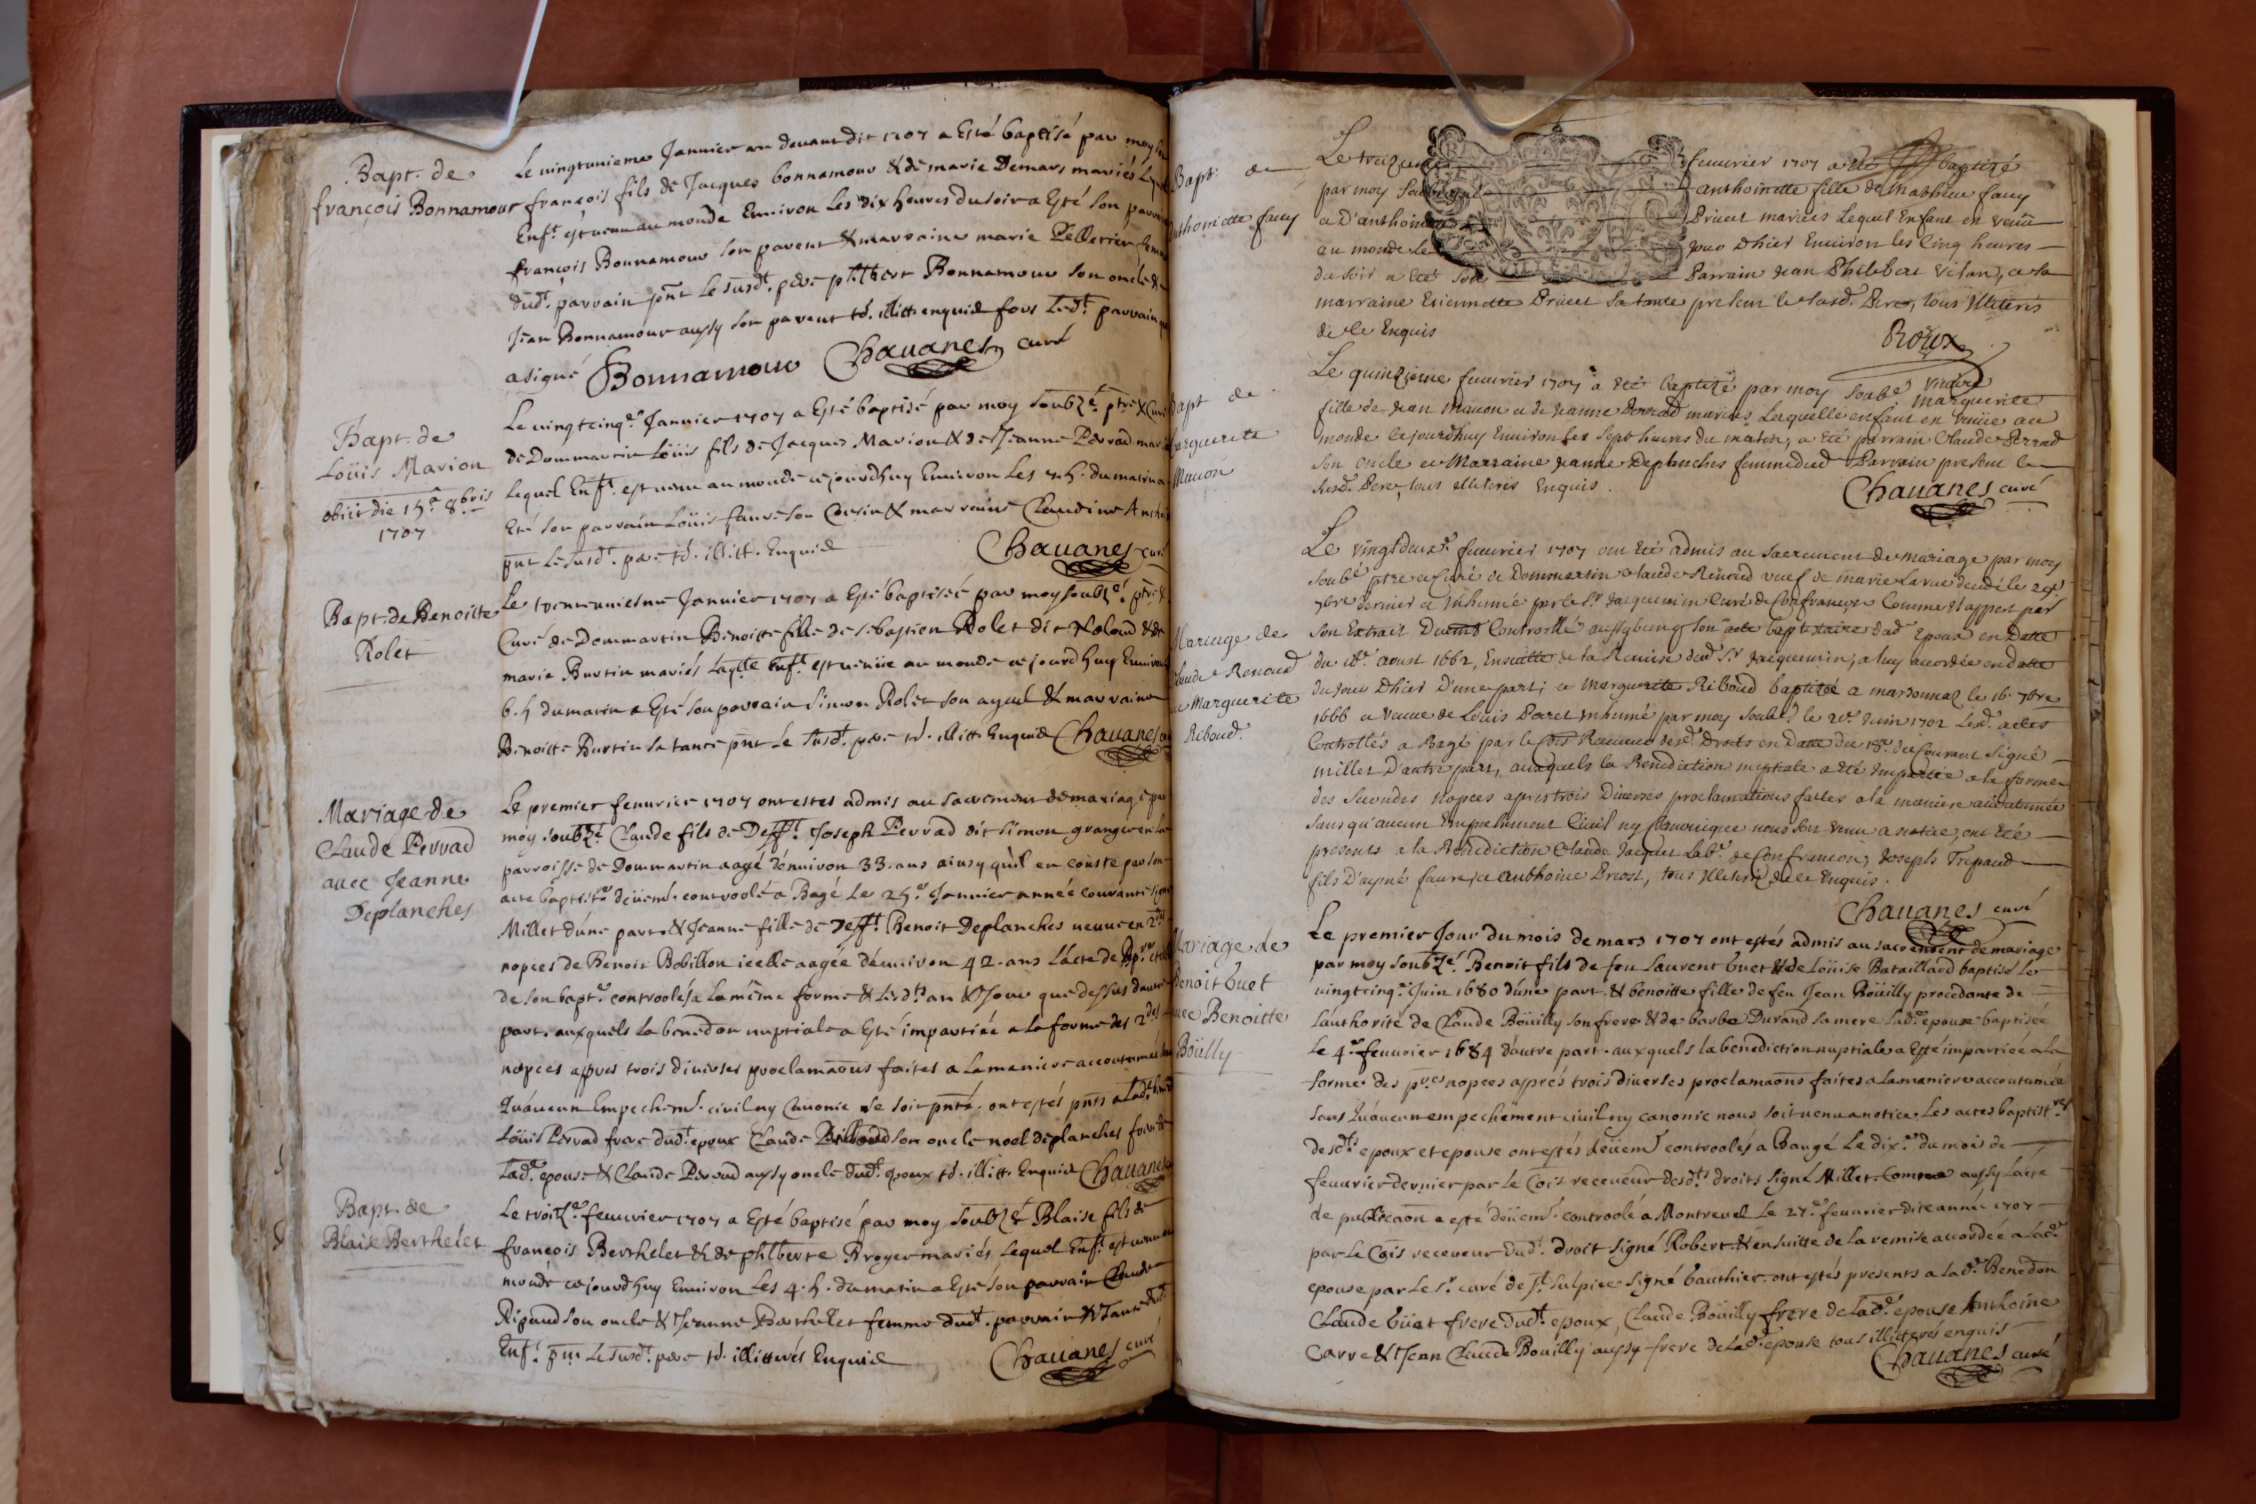 Bapt. de
françois Bonnamour
Le vingtunieme Janvier an devant dit 1707 a Esté baptisé par moy
françois fils de Jacques bonnamour & de marie Demars mariés
Enft. est venu au monde Environ les dix heures du soir a Esté son
françois Bonnamour son parent & marraine marie Pelletier
dudt. parrain pnt le susdt. pere philbert Bonnamour son oncle &
Jean Bonnamour aussy son parent td. illitt. enquis fors Ledt. parrain
a signé Bonnamour Chauanes curé
Bapt. de
Loüis Marion
obiit die 15a 8bris
1707
Le vingtcinqe. Janvier 1707 a Esté baptisé par moy soubzé. ptre & Curé
de Dommartin Loüis fils de Jacques Marion & de Jeanne Perrad
Lequel Enft. est venu au monde cejourdhuy Environ Les h. du matin a
Eté son parrain Loüis faure son Cousin & marraine Claudine
pnt Le susdt. pere td. illitt. Enquis Chauanes curé
Bapt. de Benoitte
Rolet
Le trenteunieme Janvier 1707 a Esté baptisée par moy soubzé. ptre &
Curé de Dommartin Benoitte fille de sebastien Rolet dit & de
marie Burtin mariés Laqlle Enft. est venüe au monde cejourdhuy Environ
6. h du matin a Esté son parrain Simon Rolet son ayeul & marraine
Benoitte Burtin sa tante pnt Le susdt. pere td. illitt. Enquis Chauanes
Mariage de
Claude Perrad
auec Jeanne
Deplanches
Le premier feuurier 1707 ont estés admis au sacrement de mariage par
moy soubzé. Claude fils de Defft. Joseph Perrad dit Simon granger en la
parroisse de Dommartin aagé dénuiron 33. ans ainsy qu'il en conste par son
acte baptiste. deüemt. controolé a Bagé Le 25e. Janvier année courante signé
Millet d'une part. & Jeanne fille de defft. Benoit Deplanches ueuue en 2des
nopces de Benoit Bobillon icelle aagée dénuiron 42. ans L'acte de
de son bapte. controolés a la même forme & Lesdts. an & Jour que dessus dautre
part. auxquels la benedon nuptiale a Esté impartiée a la forme des 2des
nopces apprès trois diuerses proclamaõns faites a la maniere accoutumée
Qu'aucun Empechemt. ciuil ny Canonic ne soit pnté. ont estés pnts a lade.
Loüis Perrad frere dudt. epoux Claude son oncle noel deplanches frere de
Lade. epouse & Claude Perrad aussy oncle dudt. epoux td. illitt. Enquis Chauanes
Bapt. de
Blaise Berthelet
Le troize. feuurier 1707 a Esté baptisé par moy soubzé. Blaise fils de
françois Berthelet & de philberte Broyer mariés Lequel Enft. est uenu au
monde cejourdhuy Enuiron Les 4. h. du matin a Esté son parrain Claude
Ripaud son oncle & Jeanne Berthelet femme dudt. parrain & tante dudt.
Enft. pnt Le susdt. pere td. illitterés Enquis Chauanes curé
Bapt. de
anthoinette fauy
Le treizieme feuurier 1707 a eté baptizé
par moy soubsigné anthoinette fille de Mathieu fauy
a D'anthoinette Priuet mariées Lequel Enfant est venu
au monde le jour Dhier Enuiron les Cinq heures
du soir a eté son Parrain jean Philebert Velan, et sa
marraine Etiennette Priuet sa tante present le susd. Pere, tous Illiterés
de ce Enquis
Roux
Vicaire
Bapt de
Marguerite
Mauon
Le quinzieme feuurier 1707 a eté baptizé par moy soubé. marguerite
fille de jean Mauon et de jeanne Perrad mariés, Laquelle enfant est venüe au
monde cejourdhuy Enuiron les sept heures du matin, a eté parrain Claude Perrad
son oncle et Marraine jeanne Deplanches femme dud Parrain present le
susd. Pere, tous illiterés Enquis. Chauanes curé
Mariage de
Claude Renoud
et Marguerite
Riboud.
Le vingtdeuxe. feuurier 1707 ont eté admis au sacrement de mariage par moy
soubé ptre et Curé de Dommartin Claude Renoud veuf de marie Larue decedé le
7bre dernier et Inhumé par le Sr. Jacquemin Curé de Confrançon Comme il appert par
son Extrait Duemt Controollé aussybien q son acte baptistaire dud Epoux en Datte
du 18e. aoust 1662, Ensuitte de la Remise dud Sr. Jacquemin, a luy accordée en datte
du jour Dhier D'une part; et Marguerite Riboud baptizée a marsonnaz le 16. 7bre
1666 et veuue de Louis Poret Inhumé par moy soubé le 20e Juin 1702 Lesd. actes
Controllés a Bagé par le Cois Receueur desd. Droits en Datte du 18e. du Courant signé
millet D'autre part, auxquels la Benediction nuptiale a eté Impartie a la forme
des secondes Nopces apres trois Diuerses proclamations faites a la maniere accoutumée
sans qu'aucun Empechement Ciuil ny Canonique nous soit venu a notice, ont eté
presents a la Benediction Claude jacquet Labr. de Confrancon, Joseph Trepaud
fils D'aymé faure, et anthoine Priost, tous Illiterés de ce Enquis.
Chauanes curé
Mariage de
Benoit buet
auec Benoitte
Boüilly
Le premier Jour du mois de mars 1707 ont estés admis au sacrement de mariage
par moy soubzé. Benoit fils de feu Laurent buet & de Loüise Bataillard baptisé le
uingtcinqe. Juin 1680 d'une part. & benoitte fille de feu Jean Boüilly procedante de
L'authorité de Claude Boüilly son frere & de barbe Durand sa mere lade. epouse baptisée
Le 4e. feuurier 1684 d'autre part. auxquels la benediction nuptiale a Esté impartiée a la
forme des pres nopces apprés trois diuerses proclamaõns faites a la maniere accoutumée
sans qu'aucun empechement ciuil ny canonic nous soit uenu a notice. Les actes baptistres
desdts. epoux et epouse ont estés deüemt. controolés a Baugé Le dixe. du mois de
feuurier dernier par Le Cois receueur desdts. droits signé Millet. Comme aussy Lacte
de publicaõn a esté deüemt. controolé a Montreuel Le 27e. feuurier dite année 1707
par Le Cois receueur dudt. droit signé Robert. & ensuitte de La remise accordée a Lade.
epouse par Le Sr. curé de St. Sulpice signé Gauthier. ont estés presents a lade. Benedon
Claude Büet frere dudt. epoux, Claude Boüilly frere de Lade. epouse Anthoine
Carre & Jean Claude Boüilly aussy frere de Lade. epouse tous illitterés enquis
Chauanes curé